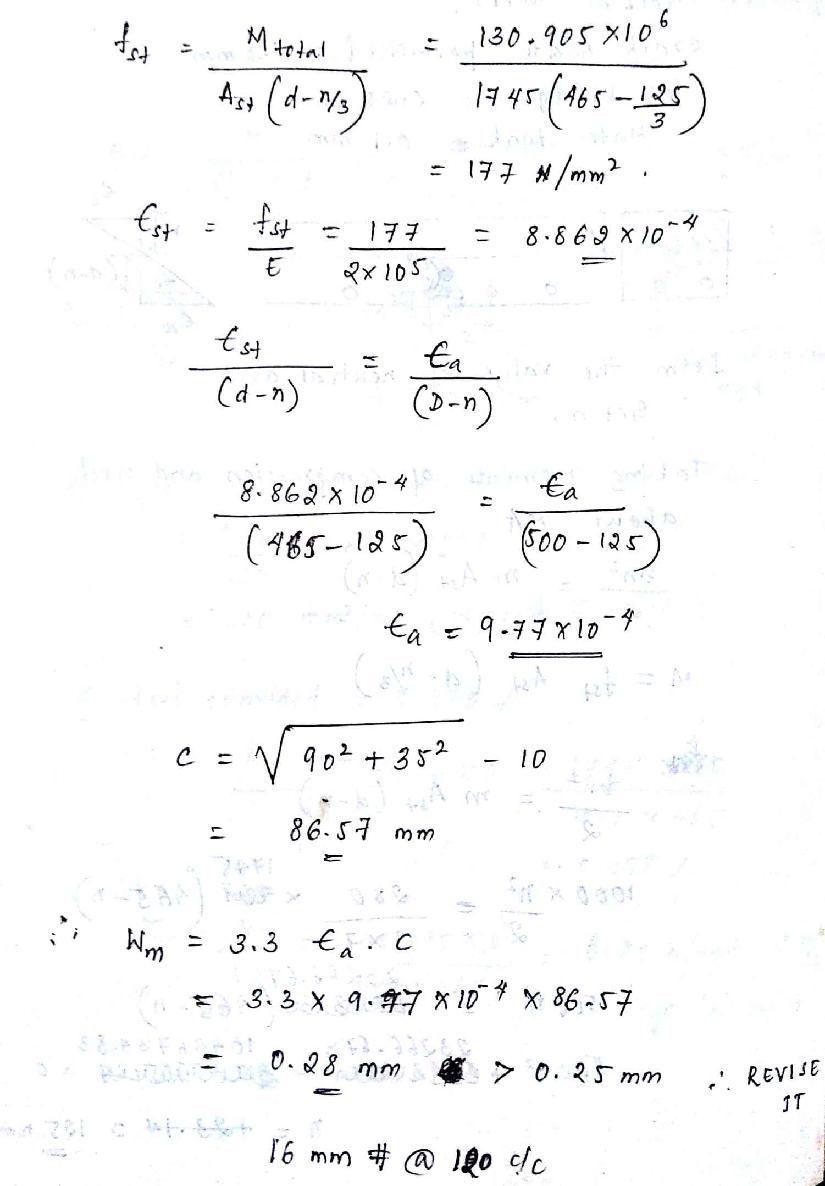 fst = M total / Ast (d - n/3) = 130.905 × 10⁶ / 1745 (465 - 125/3)
= 177 N/mm².
Єst = fst / E = 177 / 2×10⁵ = 8.862 × 10⁻⁴
Єst / (d-n) = Єa / (D-n)
8.862 × 10⁻⁴ / (465 - 125) = Єa / (500 - 125)
Єa = 9.77 × 10⁻⁴
C = √(90² + 35²) - 10
= 86.57 mm
∴ Wm = 3.3 Єa . C
= 3.3 × 9.77 × 10⁻⁴ × 86.57
= 0.28 mm > 0.25 mm ∴ REVISE IT
16 mm # @ 120 c/c